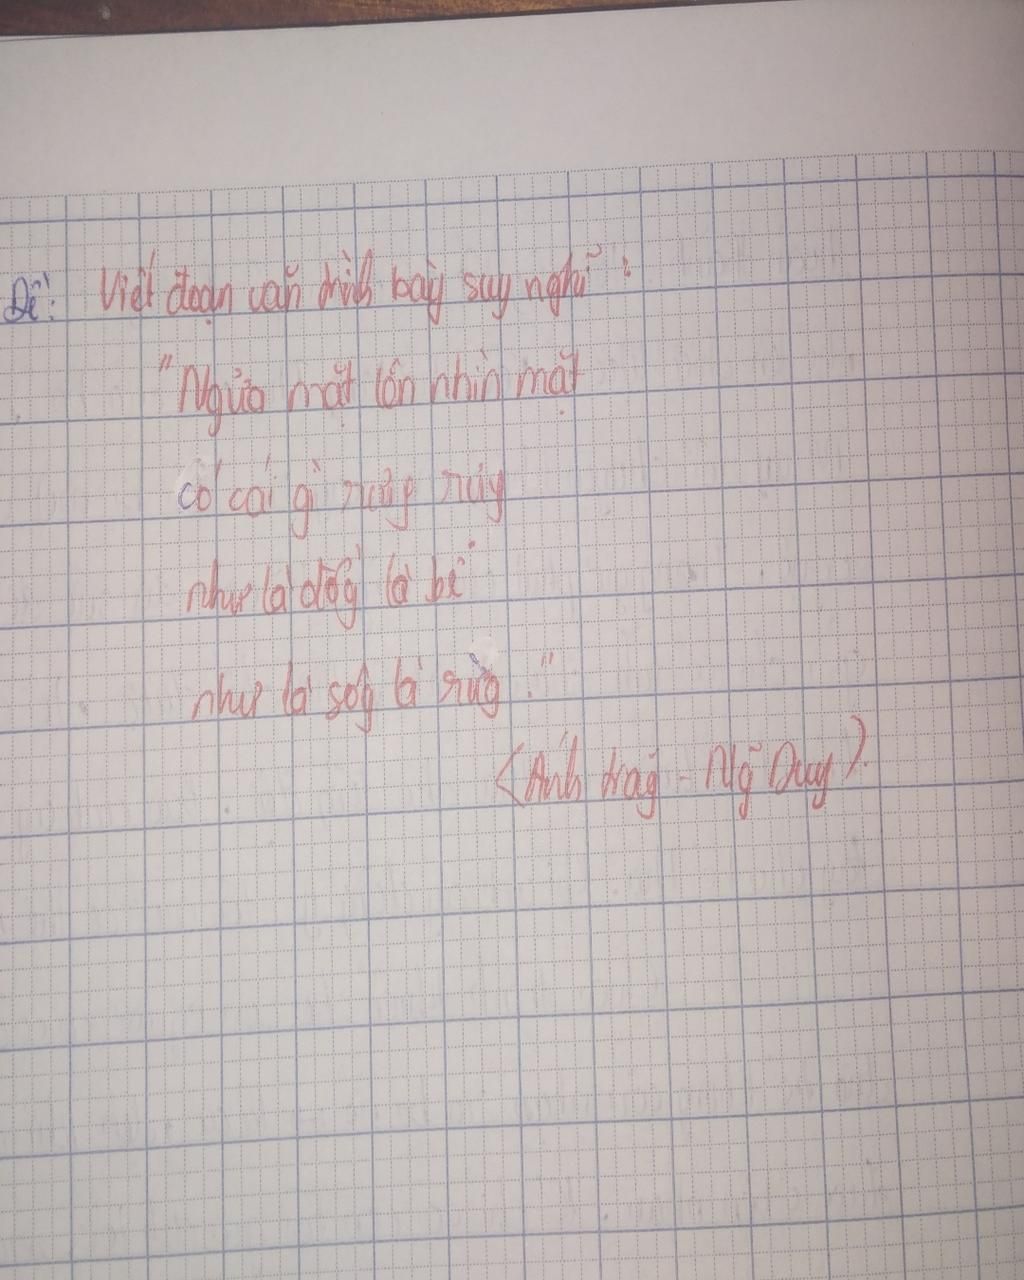 Đề: Viết đoạn văn trình bày suy nghĩ :
"Ngửa mặt lên nhìn mặt
có cái gì rưng rưng
như là đồng là bể
như là sông là rừng."
(Ánh trăng - Ng~ Duy).